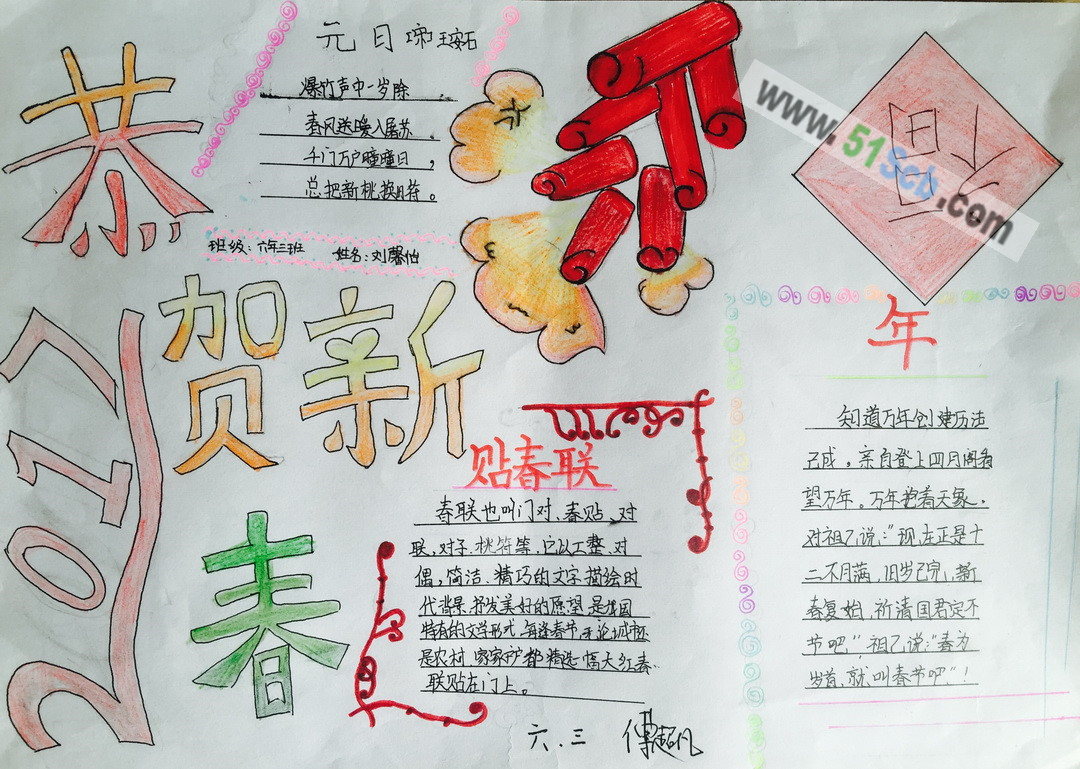 恭
贺新
春
2017
元日 王安石
爆竹声中一岁除
春风送暖入屠苏
千门万户曈曈日,
总把新桃换旧符。
班级:六年三班 姓名:刘馨怡
福
www.51Scb.com
贴春联
春联也叫门对、春贴、对
联,对子,桃符等,它以工整、对
偶,简洁、精巧的文字描绘时
代背景,抒发美好的愿望,是我国
特有的文学形式,每逢春节,无论城市还
是农村,家家户户都精选一幅大红春
联贴在门上。
六.三 傅超凡
年
知道万年创建历法
已成,亲自登上日月阁看
望万年。万年指着天象。
对祖乙说:"现在正是十
二个月满,旧岁已完,新
春复始,祈请国君定个
节吧",祖乙说:"春为
岁首,就叫春节吧"!